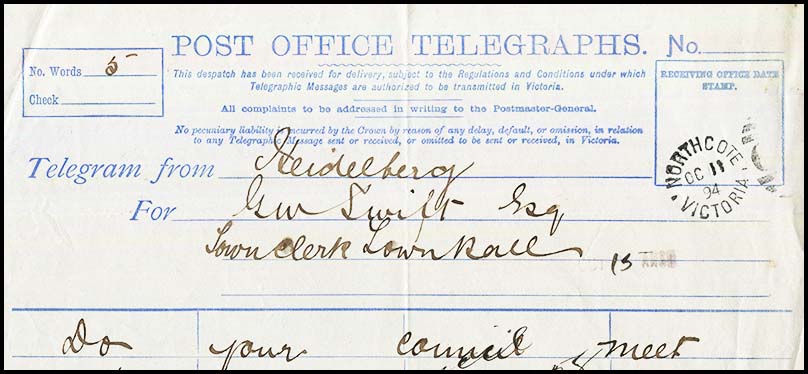 POST OFFICE TELEGRAPHS. No.
No. Words 5
Check
This despatch has been received for delivery, subject to the Regulations and Conditions under which
Telegraphic Messages are authorized to be transmitted in Victoria.
All complaints to be addressed in writing to the Postmaster-General.
No pecuniary liability is incurred by the Crown by reason of any delay, default, or omission, in relation
to any Telegraphic Message sent or received, or omitted to be sent or received, in Victoria.
RECEIVING OFFICE DATE
STAMP.
NORTHCOTE
OC 11
94
VICTORIA
Telegram from Heidelberg
For GW Swift Esq
Town Clerk Town Hall
15
Do your council meet